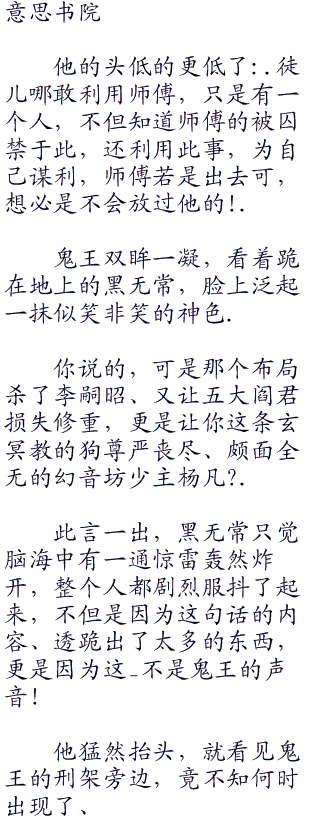 意思书院
他的头低的更低了:.徒
儿哪敢利用师傅，只是有一
个人，不但知道师傅的被囚
禁于此，还利用此事，为自
己谋利，师傅若是出去可，
想必是不会放过他的!.
鬼王双眸一凝，看着跪
在地上的黑无常，脸上泛起
一抹似笑非笑的神色.
你说的，可是那个布局
杀了李嗣昭、又让五大阎君
损失修重，更是让你这条玄
冥教的狗尊严丧尽、颇面全
无的幻音坊少主杨凡?.
此言一出，黑无常只觉
脑海中有一通惊雷轰然炸
开，整个人都剧烈服抖了起
来，不但是因为这句话的内
容、透跪出了太多的东西，
更是因为这_不是鬼王的声
音！
他猛然抬头，就看见鬼
王的刑架旁边，竟不知何时
出现了、